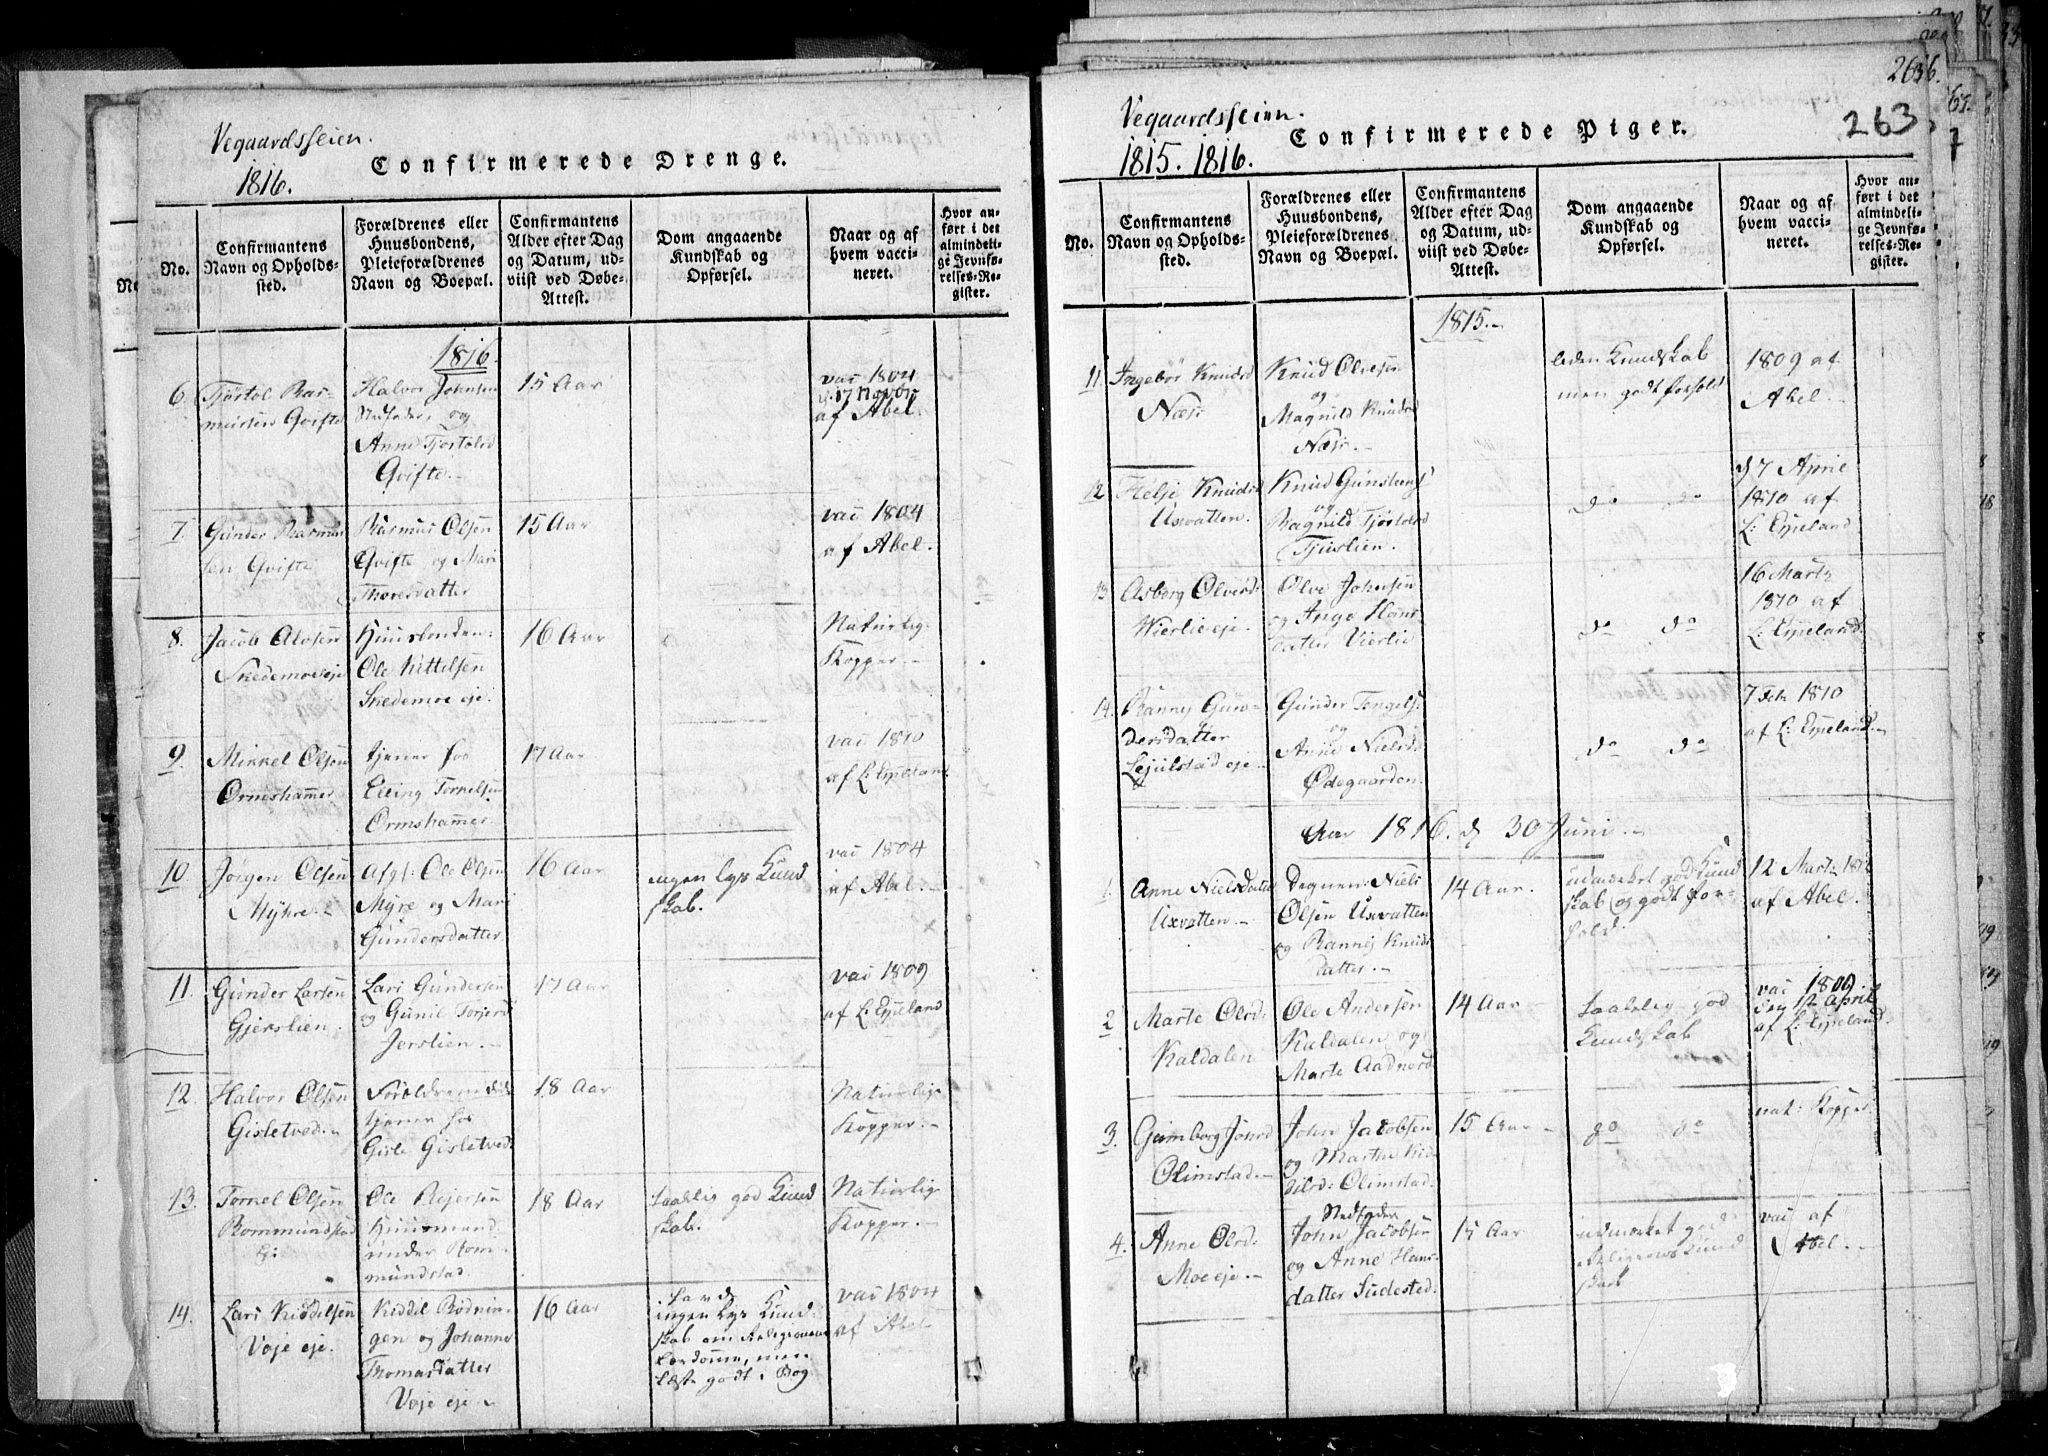 Vegaardsheien.
1816.
Confirmerede Drenge.
No.
Confirmantens
Navn og Opholds-
sted.
Forældrenes eller
Huusbondens,
Pleieforældrenes
Navn og Boepæl.
Confirmantens
Alder efter Dag
og Datum, ud-
viist ved Døbe-
Attest.
Dom angaaende
Kundskab og
Opførsel.
Naar og af
hvem vacci-
neret.
Hvor an-
ført i det
almindeli-
ge Jevnfø-
relses-Re-
gister.
1816.
6.
Tjøstol Ras-
mussen Qvifte
Halvor Johnsen
Stedfader, og
Anne Tjostolsd
Qvifte.
15 Aar
vac 1804
17 Novbr
af Abel.
7.
Gunder Rasmus
sen Qvifte
Rasmus Olsen
Qvifte og Mari
Thoresdatter
15 Aar
vac 1804
af Abel.
8.
Jacob Alvsen
Skedemoe eje
Huusbonden:
Ole Kittelsen
Skedemoe eje.
16 Aar
Naturlig-
Kopper.
9.
Mikkel Olsen
Ormshammer
tjener hos
Ormshammer.
17 Aar
vac 1810
af L: Espeland.
10.
Jörgen Olsen
Myhre.
Afg: Ole Olsen
Myre og Mari
Gundersdatter
16 Aar
ingen lys Kund
skab.
vac 1804
af Abel.
11.
Gunder Larsen
Gjerslien.
Lars Gundersen
og Gunil Torjersd
Jerslien.
17 Aar
vac 1809
af L: Espeland
12.
Halvor Olsen
Gisletved.
Forældrene døde
tjener hos
Gisle Gisletved.
18 Aar
Naturlig-
Kopper.
13.
Tornel Olsen
Rommundstad
Ei
Ole Rejersen
Huusmand
under Rom-
mundstad.
18 Aar
taalelig god Kund
skab.
Naturlig-
Kopper.
14.
Lars Kiddelsen
Voje eje.
Kiddil Rødnin-
gen og Johanne
Thomasdatter
Voje eje
16 Aar
havde
ingen lys Kund-
skab om Religionens
Lærdomme, men
læste godt i Bog
vac 1804
af Abel
Vegaardsheien.
1815. 1816.
Confirmerede Piger.
266.
263
No.
Confirmantens
Navn og Opholds-
sted.
Forældrenes eller
Huusbondens,
Pleieforældrenes
Navn og Boepæl.
Confirmantens
Alder efter Dag
og Datum, ud-
viist ved Døbe-
Attest.
Dom angaaende
Kundskab og
Opførsel.
Naar og af
hvem vacci-
neret.
Hvor an-
ført i det
almindeli-
ge Jevnfø-
relses-Re-
gister.
1815.
11
Ingebör Knudsd
Næss
Knud Olvesen
og
Magnild Knudsd
Næss.
liden Kundskab
men godt forhold
1809 af
Abel.
12
Helje Knudsd
Uxvatten.
Knud Gunstens
og
Ragnild Tjøstolsd
Tjuslien.
do do
d 7 April
1810 af
L: Espeland
13
Asborg Olvesd:
Vierlie eje.
Olve Johnsen
og Inge Hans
datter Vierlie
do do
16 Martz
1810 af
L: Espeland.
14.
Rannej Gun-
dersdatter
Lejulstad eje.
Gunder Tengels:
og
Anne Nielsd
Ødegaarden
do do
7 Feb 1810
af L: Espeland.
Aar 1816. d 30 Juni.
1.
Anne Nielsdatter
Uxvatten.
Degnen: Niels
Olsen Uxvatten
og Rannej Knuds
datter.
14 Aar.
udmærket god Kund
skab, og godt for-
hold.
12 Mart: 1812
af Abel.
2
Marte Olsd:
Kaldalen
Ole Andersen
Kaldalen og
Marte Aadnesd
14 Aar
taalelig god
Kundskab
vac 1809.
den 12 April
af L: Espeland.
3.
Gunborg Johnsd
Olimstad.
John Jacobsen
og Marthe Kid-
dilsd: Olimstad.
15 Aar
do do
nat: Kopper.
4.
Anne Olsd:
Moe eje.
Stedfader
John Jacobsen
og Anne Hans-
datter Sudested.
15 Aar
udmærket god
Religions Kund
skab
vac af
Abel.